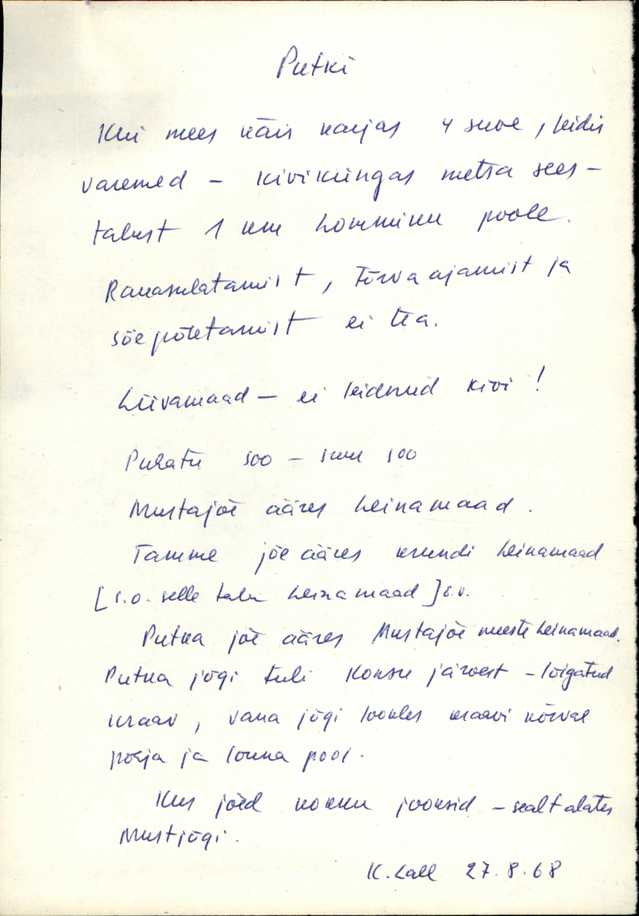 Putki
Kui mees käis karjas 4 suve, leidis
varemed – kiviküngas metsa sees –
talust 1 km hommiku poole.
Rauasulatamist, tõrvaajamist ja
söepõletamist ei tea.
Liivamaad – ei leidnud kivi!
Puhatu soo – suur soo
Mustajõe ääres heinamaad.
Tamme jõe ääres heinamaad
[s.o. selle talu heinamaad] s.v.
Putka jõe ääres Mustajõe meeste heinamaad.
Putka jõgi tuli Konsu järvest – lõigatud
kraav, vana jõgi lookles kraavi kõrval
põhja ja lõuna pool.
Kus jõed kokku jooksid – sealt alates
Mustjõgi.
K. Lall 27.8.68